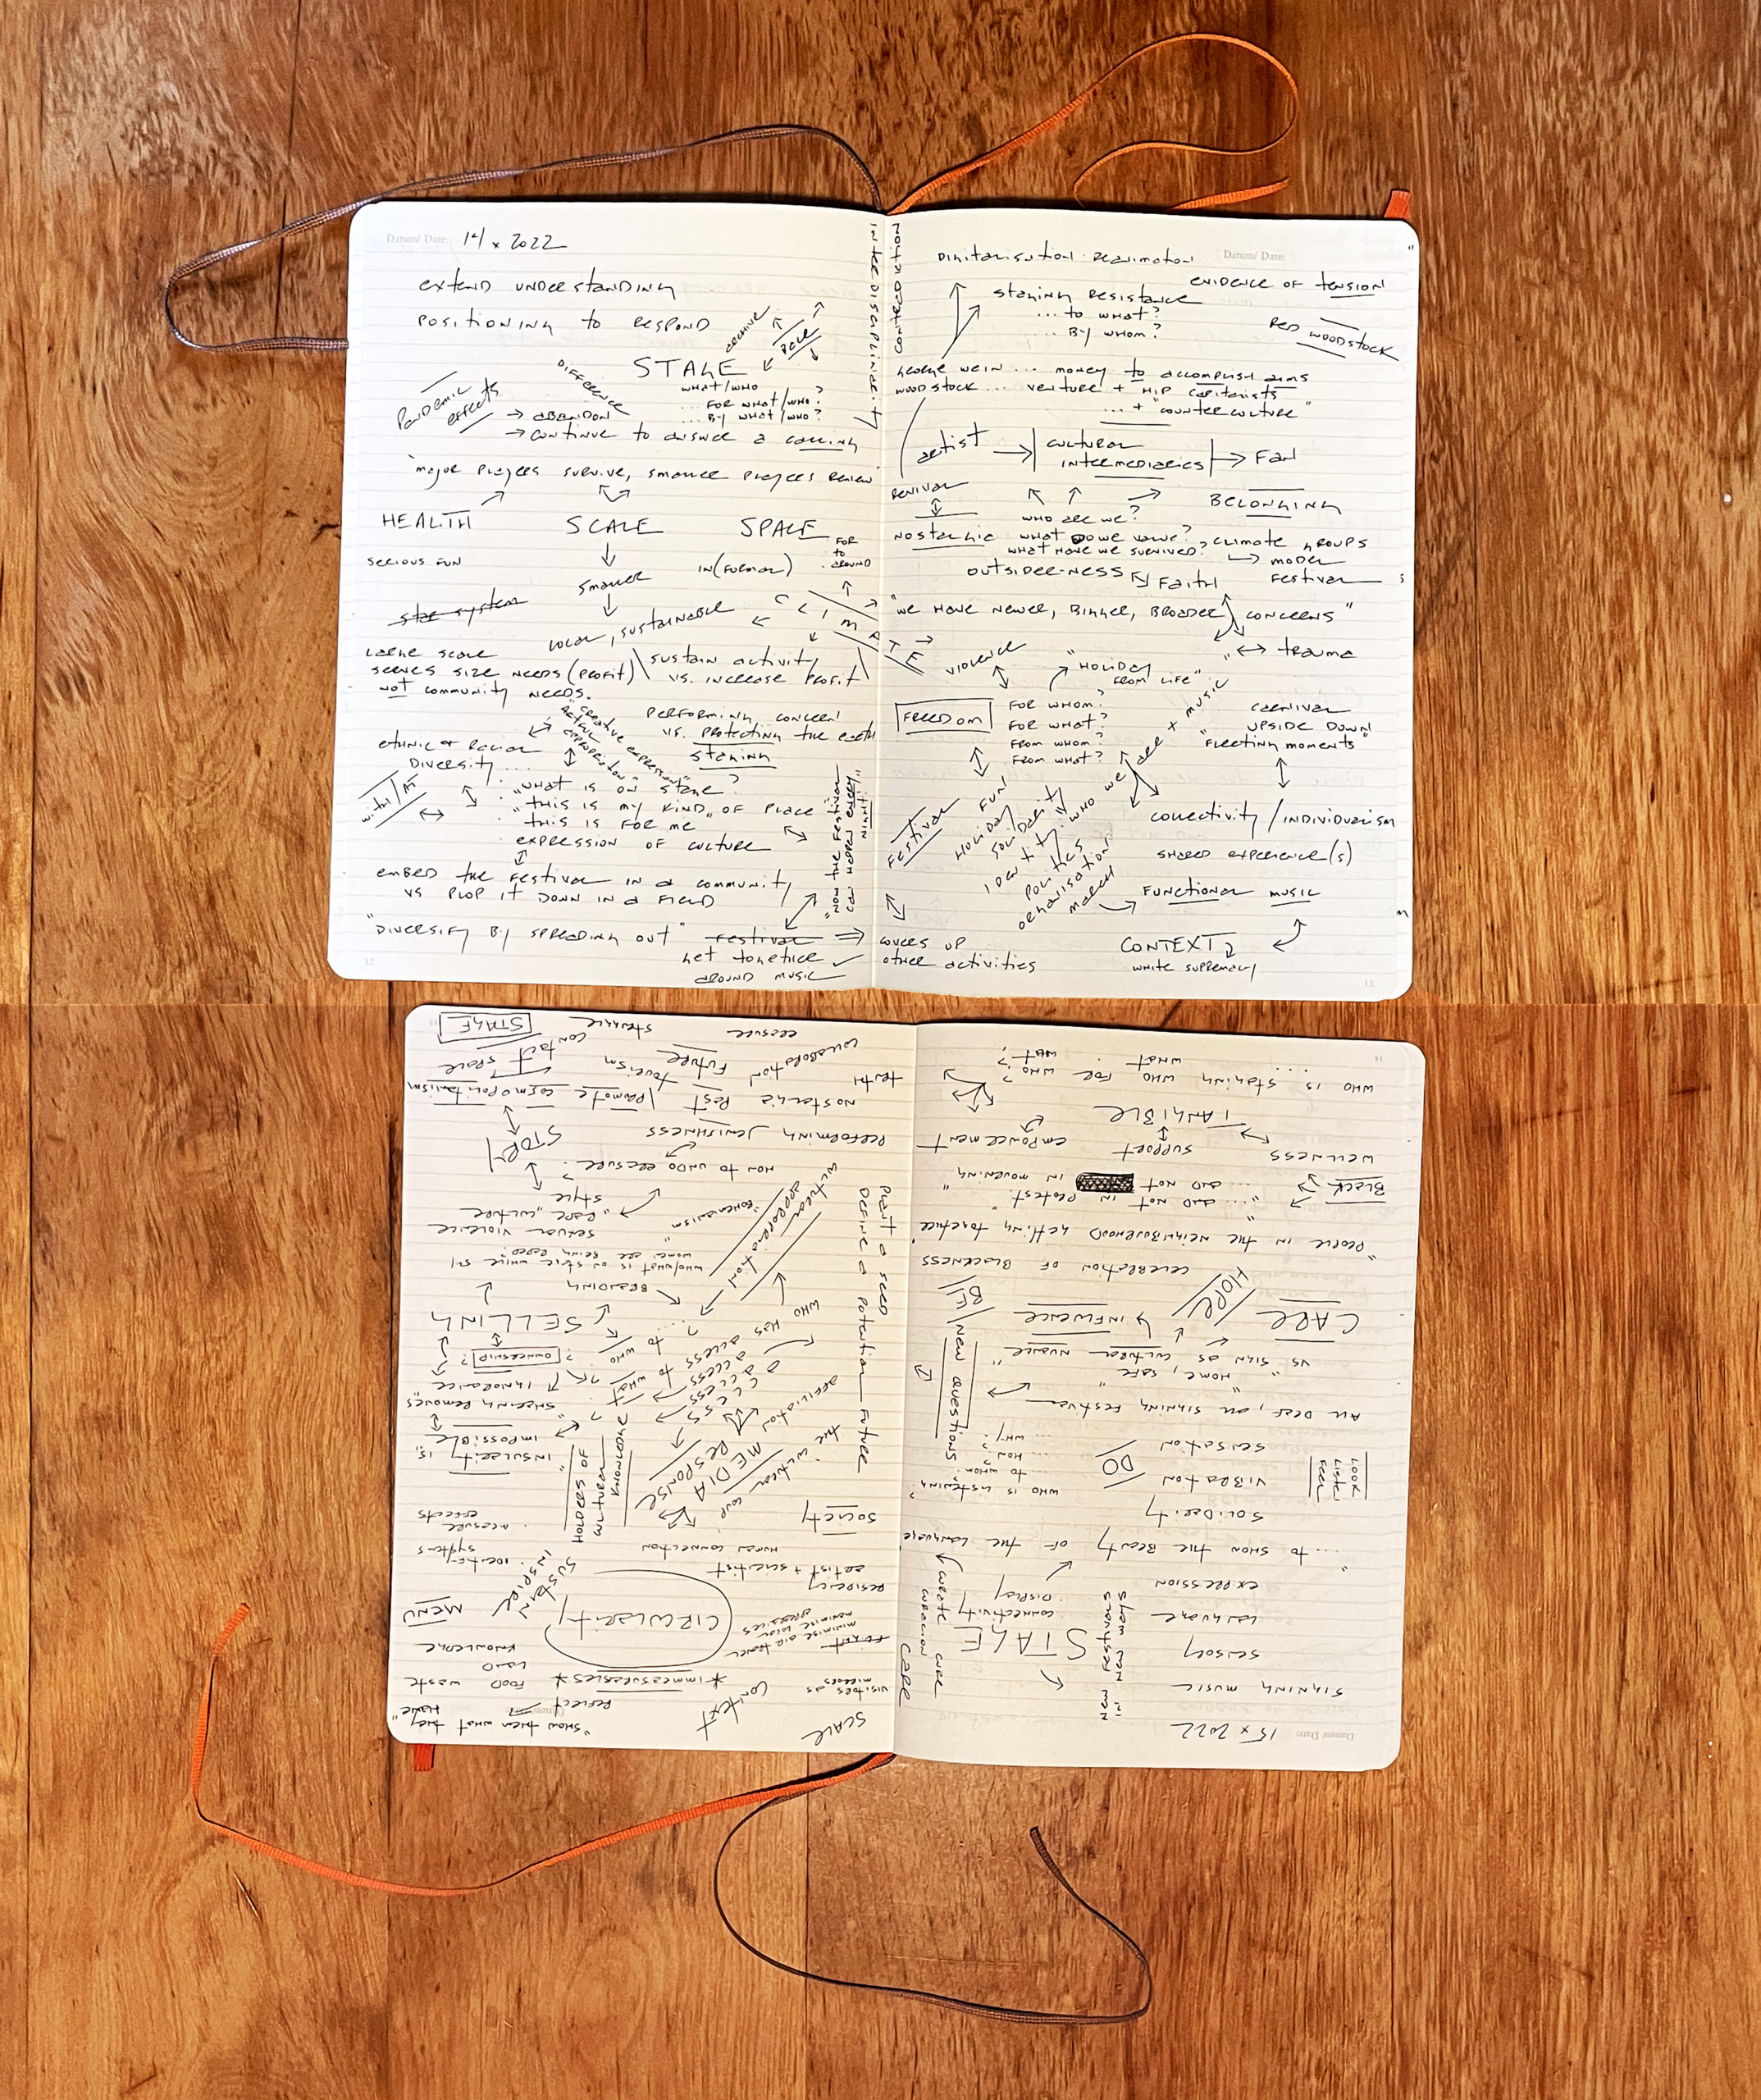 Datum/ Date: 14 x 2022
extend understanding
positioning to respond
archive
Race
STAGE
what/who
... for what/who?
... by what/who?
Pandemic effects
difference
→ abandon
→ continue to answer a calling
"major players survive, smaller players
HEALTH SCALE SPACE
for
to
around
serious fun
smaller
in(formal)
star system
local, sustainable
CLIMATE
large scale
serves size needs (profit)
not community needs.
sustain activity
vs. increase profit
"creative expression"
performing concern
vs. protecting the earth
staging
ethnic & racial
diversity ...
with/at
"what is on stage?
"this is my kind of place"
this is for me
expression of culture
"how the festival
can happen every
night."
embed the festival in a community
vs plop it down in a field
"diversify by spreading out"
festival
get together
around music
12
interdisciplinarity
Datum/ Date:
evidence of tension
staging resistance
... to what?
... by whom?
Red Woodstock
George Wein ... money to accomplish aims
Woodstock ... venture + hip capitalists
... + "counterculture"
artist → cultural
intermediaries → fan
revival
nostalgic
belonging
who are we?
what do we value?
what have we survived?
climate groups
model
festival
outsider-ness
faith
"we have newer, bigger, broader concerns"
trauma
violence
"holiday
from life"
FREEDOM
for whom?
for what?
from whom?
from what?
who we are x music
carnival
upside down
"fleeting moments"
festival
fun
holiday
solidarity
identity:
politics
organisation
march
collectivity / individualism
shared experience(s)
functional music
covers up
other activities
CONTEXT
white supremacy
13
Datum/ Date: 15 x 2022
signing music
sensory
language
expression
STAGE
connectivity
display
create
care
"... to show the beauty of the language"
solidarity
vibration
sensation
DO
look
listen
feel
who is listening?
... to whom?
... how?
... why?
new questions
all deaf, all signing festival
"home, safe,"
vs sign as cultural nuance"
CARE
HOPE
influence
BE
celebration of Blackness
"people in the neighbourhood getting together"
"... and not in protest"
... and not in mourning"
Black
wellness support empowerment
TANGIBLE
who is staging who for who?
.... what ... what?
14
Datum/ Date:
"show them what they have"
reflect
SCALE
context
visitors as
*immeasurables*
food waste
land
knowledge
minimise air travel
CIRCULarity
MENU
residency
artist + scientist
human connection
sustain
inspire
. identify
systems
. measure
effects
society
media
response
holders of
cultural
knowledge
affiliation
insularity is
impossible
sharing removes
ignorance
ownership?
who has access
access to who?
access to what?
access
plant a seed
define a potential future
SELLING
branding
who/what is on stage while
women are being raped?
sexual violence
"rape culture"
style
cultural
appropriation
how to undo erasure?
STORY
performing Jewishness
nostalgic past / promote cosmopolitanism
truth
tourism
contact space
collaboration future
erasure
struggle
STAGE